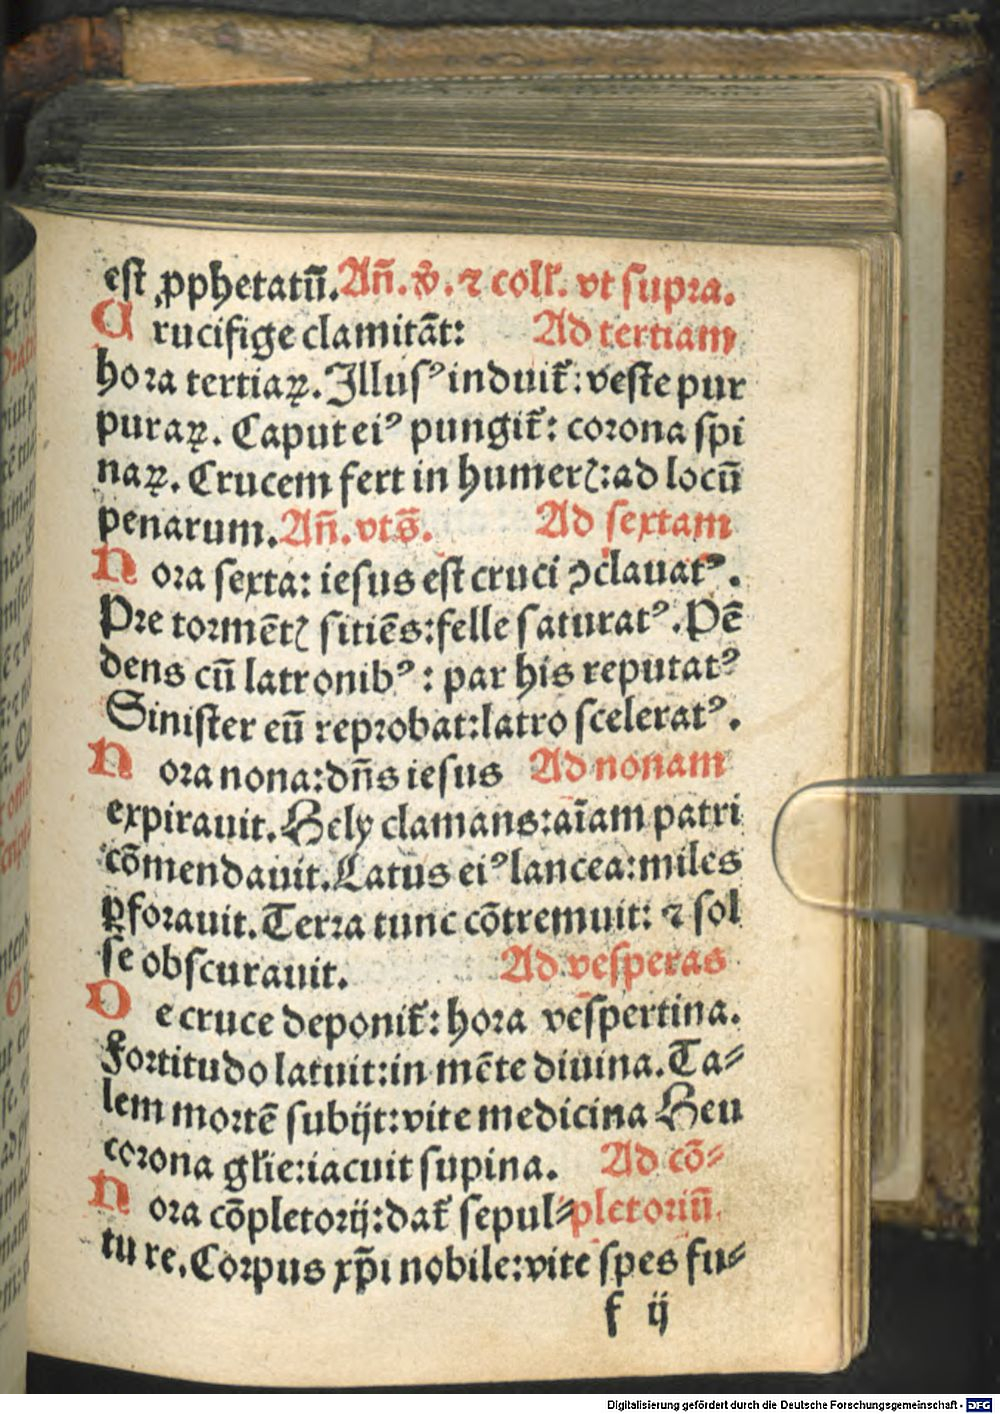 est ꝓphetatũ. Añ. v̕. ⁊ coll̕. vt supꝛa.
Crucifige clamitãt: Ad tertiam
hoꝛa tertiaꝝ. Illusꝰ induit̃: veste pur
puraꝝ. Caput eiꝰ pungit̃: coꝛona spi
naꝝ. Crucem fert in humerꝭ: ad locũ
penarum. Añ. vts̃. Ad sextam
Hoꝛa sexta: iesus est cruci ꝯclauatꝰ.
Pꝛe toꝛmẽtꝭ sitiẽs: felle saturatꝰ. Pẽ
dens cũ latronibꝰ: par his reputatꝰ
Sinister eũ repꝛobat: latro sceleratꝰ.
Hoꝛa nona: dñs iesus Ad nonam
expirauit. Hely clamans: aĩam patri
cõmendauit. Latus eiꝰ lancea: miles
ꝑfoꝛauit. Terꝛa tunc cõtremuit: ⁊ sol
se obscurauit. Ad vesperas
De cruce deponit̃: hoꝛa vespertina.
Foꝛtitudo latuit: in mẽte diuina. Ta⸗
lem moꝛtẽ subijt: vite medicina Heu
coꝛona gl̕ie: iacuit supina. Ad cõ⸗
Hoꝛa cõpletoꝛij: dat̃ sepul⸗ pletoꝛiũ
ture. Coꝛpus xp̃i nobile: vite spes fu⸗
f ij
Digitalisierung gefördert durch die Deutsche Forschungsgemeinschaft - DFG